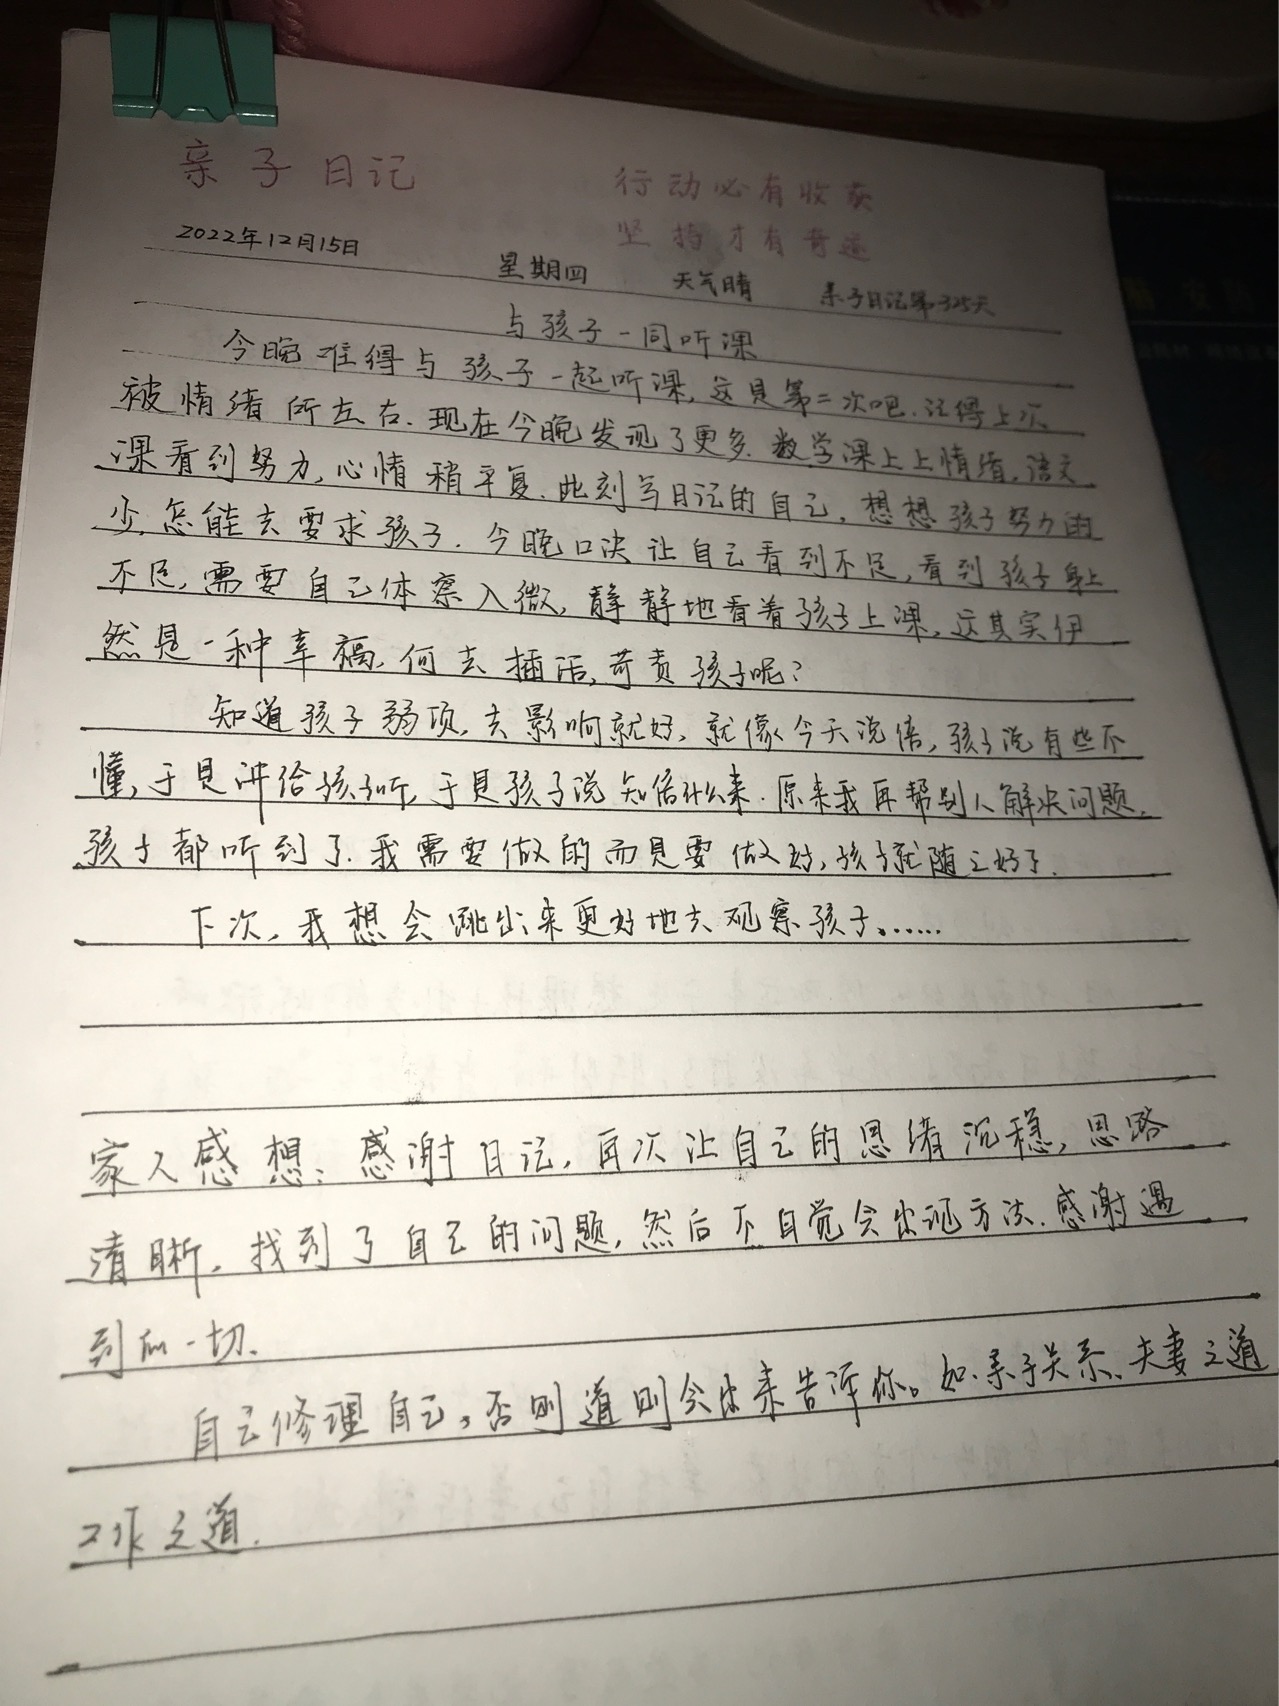 亲子日记
行动必有收获
坚持才有奇迹
2022年12月15日 星期四 天气晴 亲子日记第325天
与孩子一同听课
今晚难得与孩子一起听课,这是第二次吧.记得上次
被情绪所左右.现在今晚发现了更多.数学课上上情绪,语文
课看到努力,心情稍平复.此刻写日记的自己,想想孩子努力的
少,怎能去要求孩子.今晚口决让自己看到不足,看到孩子身上
不足,需要自己体察入微,静静地看着孩子上课,这其实伊
然是一种幸福,何去插话,苛责孩子呢?
知道孩子弱项,去影响就好,就像今天说信,孩子说有些不
懂,于是讲给孩子听,于是孩子说知信什么来.原来我再帮别人解决问题,
孩子都听到了.我需要做的而是要做好,孩子就随之好了.
下次,我想会跳出来更好地去观察孩子......
家人感想:感谢日记,再次让自己的思绪沉稳,思路
清晰,找到了自己的问题,然后不自觉会出现方法.感谢遇
到的一切.
自己修理自己,否则道则会出来告诉你。如亲子关系、夫妻之道
工作之道.